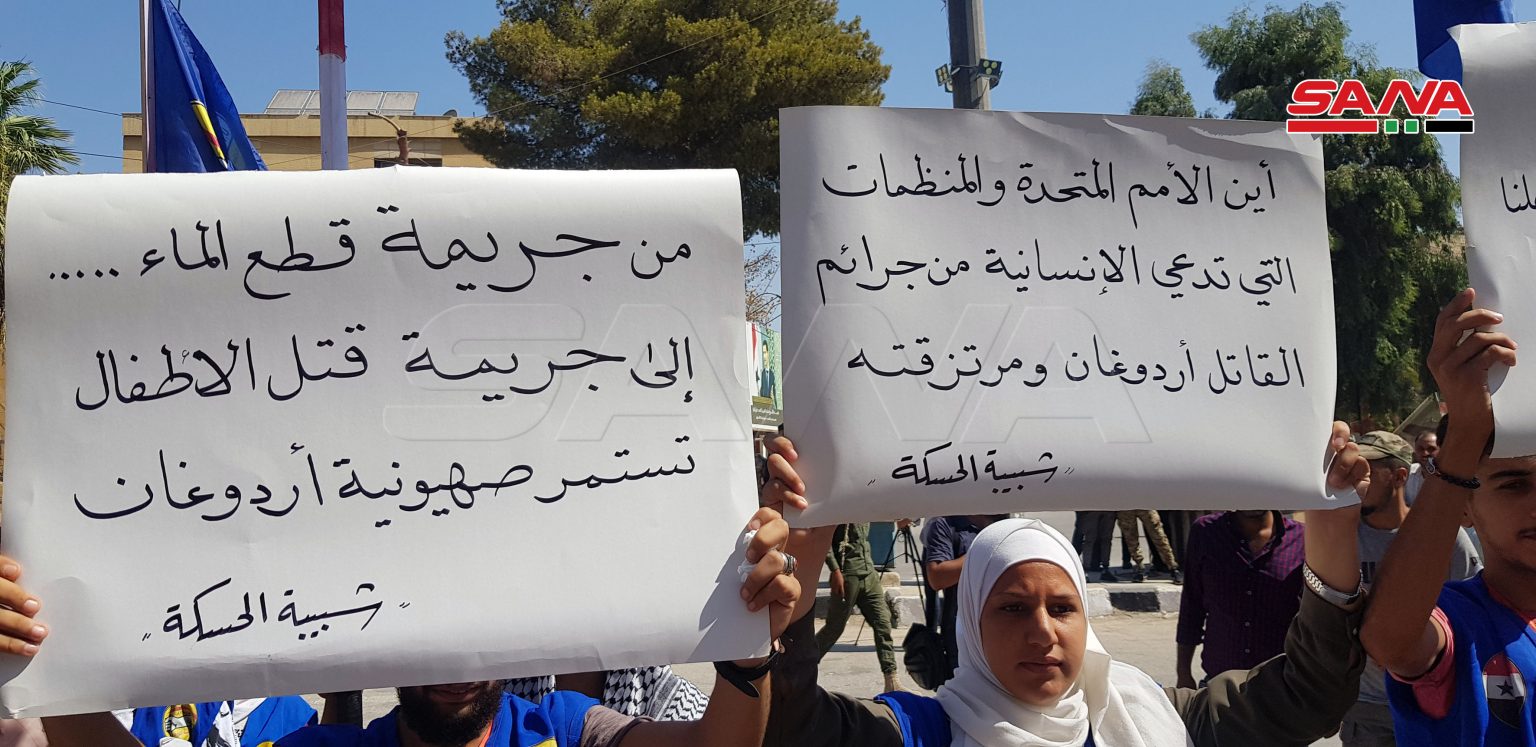 من جريمة قطع الماء .....
إلى جريمة قتل الاطفال
تستمر صهيونية أردوغان
"شبيبة الحسكة"
أين الأمم المتحدة والمنظمات
التي تدعي الإنسانية من جرائم
القاتل أردوغان ومرتزقته
"شبيبة الحسكة"
SANA
SANA